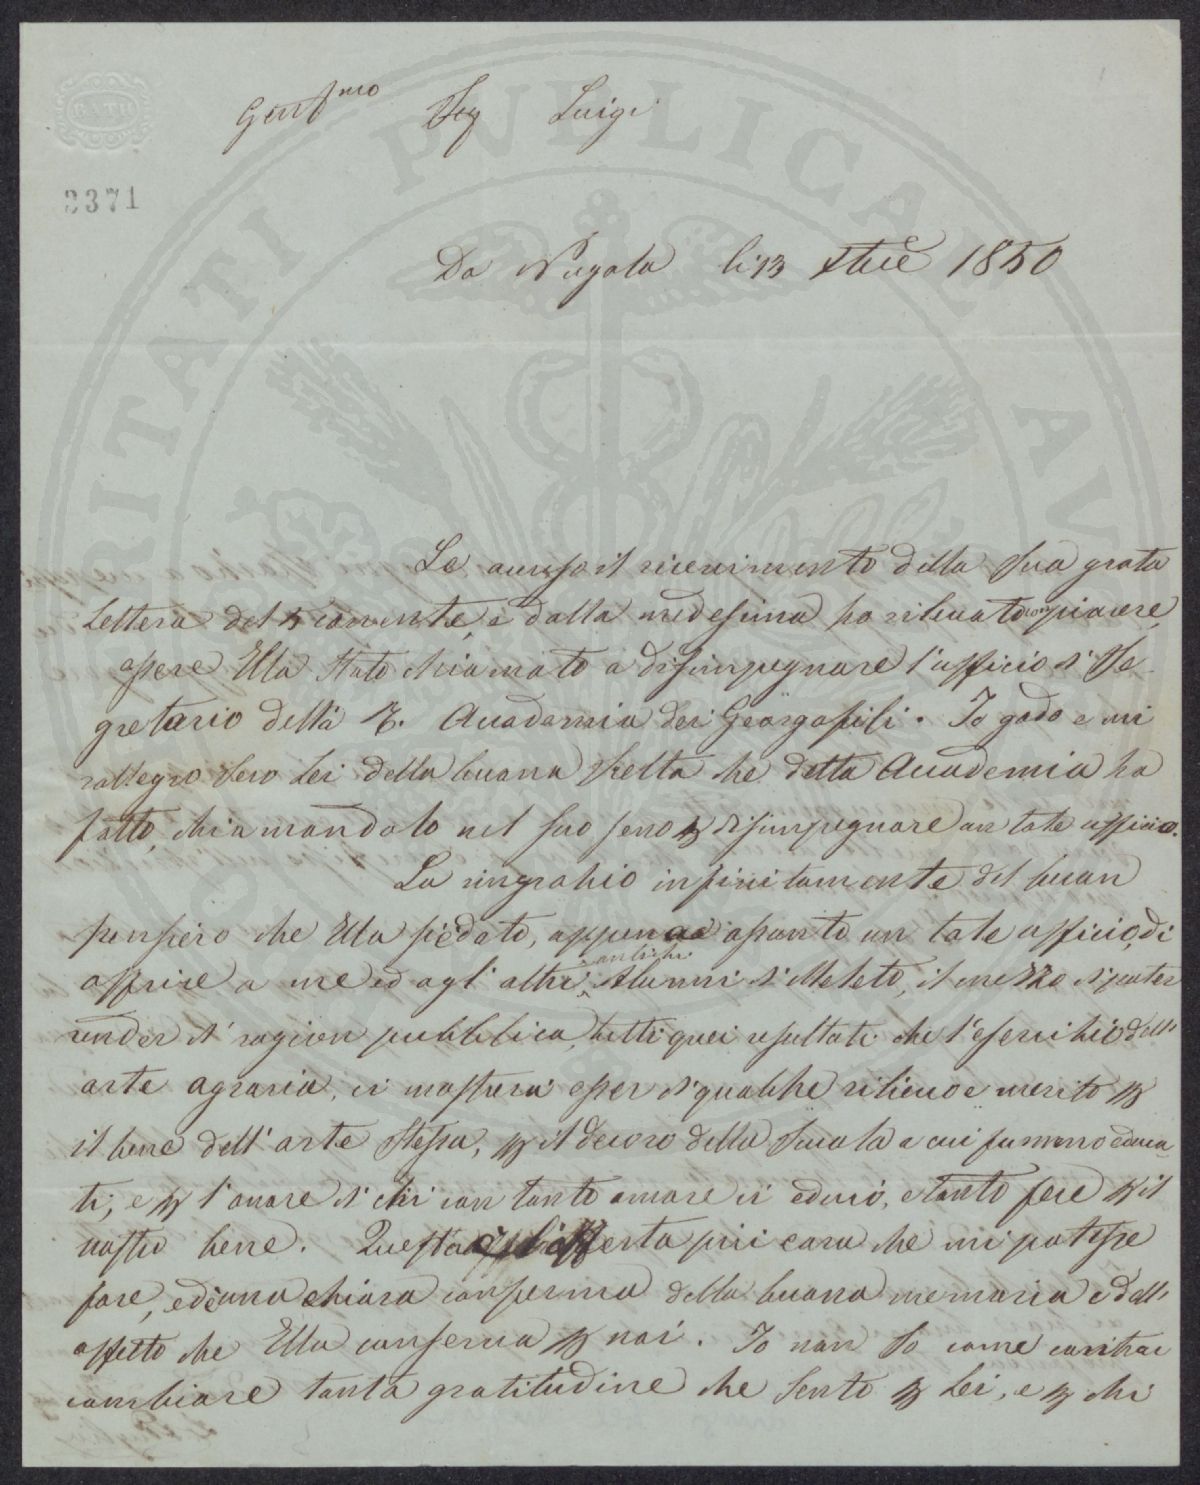 BATH
3371
PVBLICAE
Gent.mo Sig Luigi
Da Nugola li 13 1850
Le accuso il ricevimento della sua grata
Lettera del corrente, e dalla medesima ho rilevato con piacere
essere Ella stato chiamato a disimpegnare l'ufficio di Se-
gretario della R. Accademia dei Georgofili. Io godo e mi
rallegro seco Lei della buona scelta che detta Accademia ha
fatto, chiamandolo nel suo seno p disimpegnare un tale ufficio.
La ringrazio infinitamente del buon
pensiero che Ella si è dato, appena assunto un tale ufficio, di
offrire a me ed agl'altri antichi Alunni di Meleto, il mezzo di poter
render di ragion pubblica, tutti quei resultati che l'esercizio dell'
arte agraria, ci mostrerà esser di qualche rilievo e merito p
il bene dell'arte stessa, p il decoro della Scuola a cui fummo educa-
ti, e p l'onore di chi con tanto amore ci educò, e tanto fece p il
nostro bene. Questa offerta più cara che mi potesse
fare, ed è una chiara conferma della buona memoria e dell'
affetto che Ella conserva p noi. Io non so come contrac
cambiare tanta gratitudine che sento p Lei, e p chi